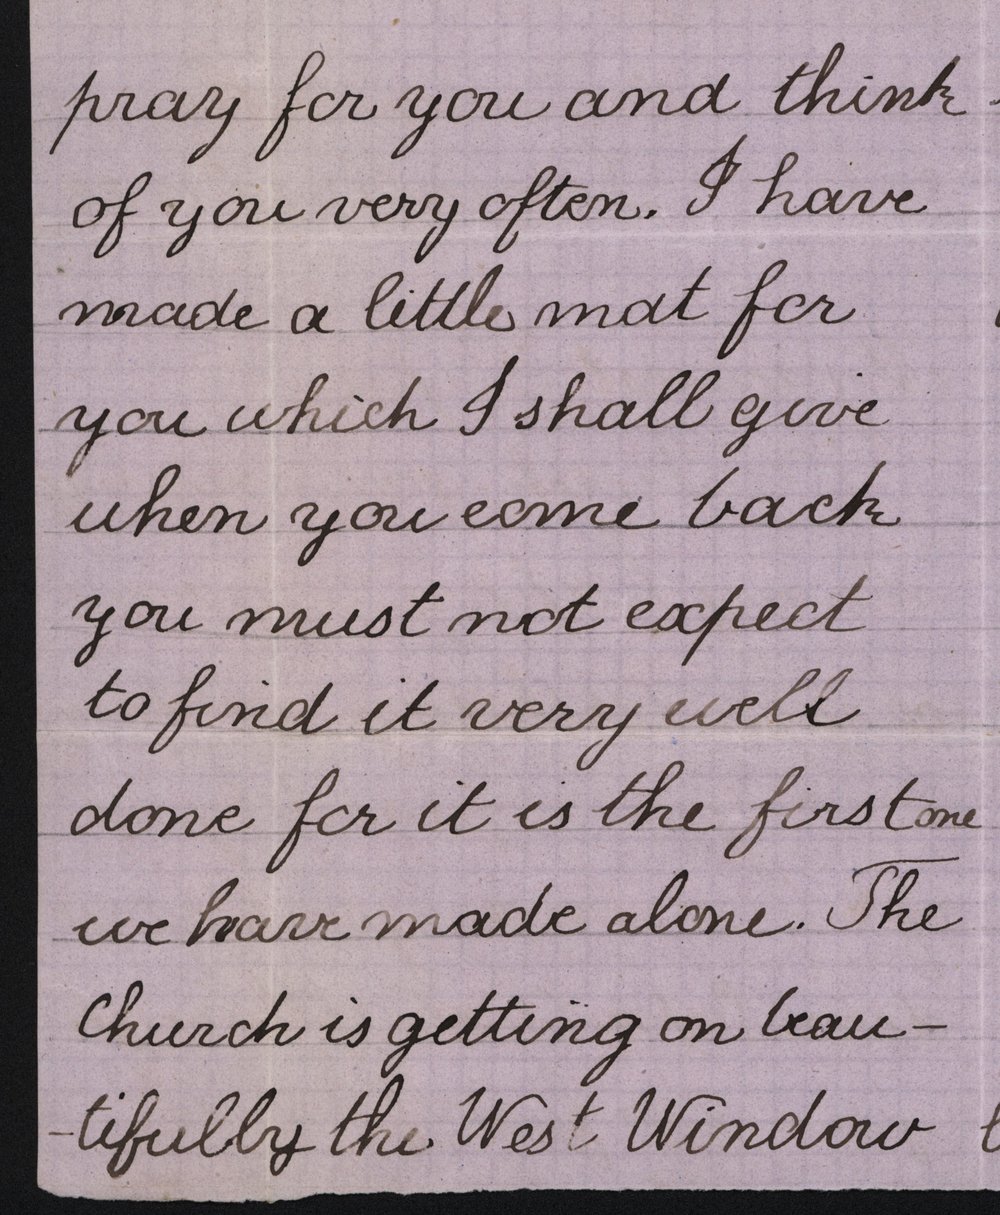 pray for you and think
of you very often. I have
made a little mat for
you which I shall give
when you come back
you must not expect
to find it very well
done for it is the first one
we have made alone. The
Church is getting on beau-
-tifully the West Window